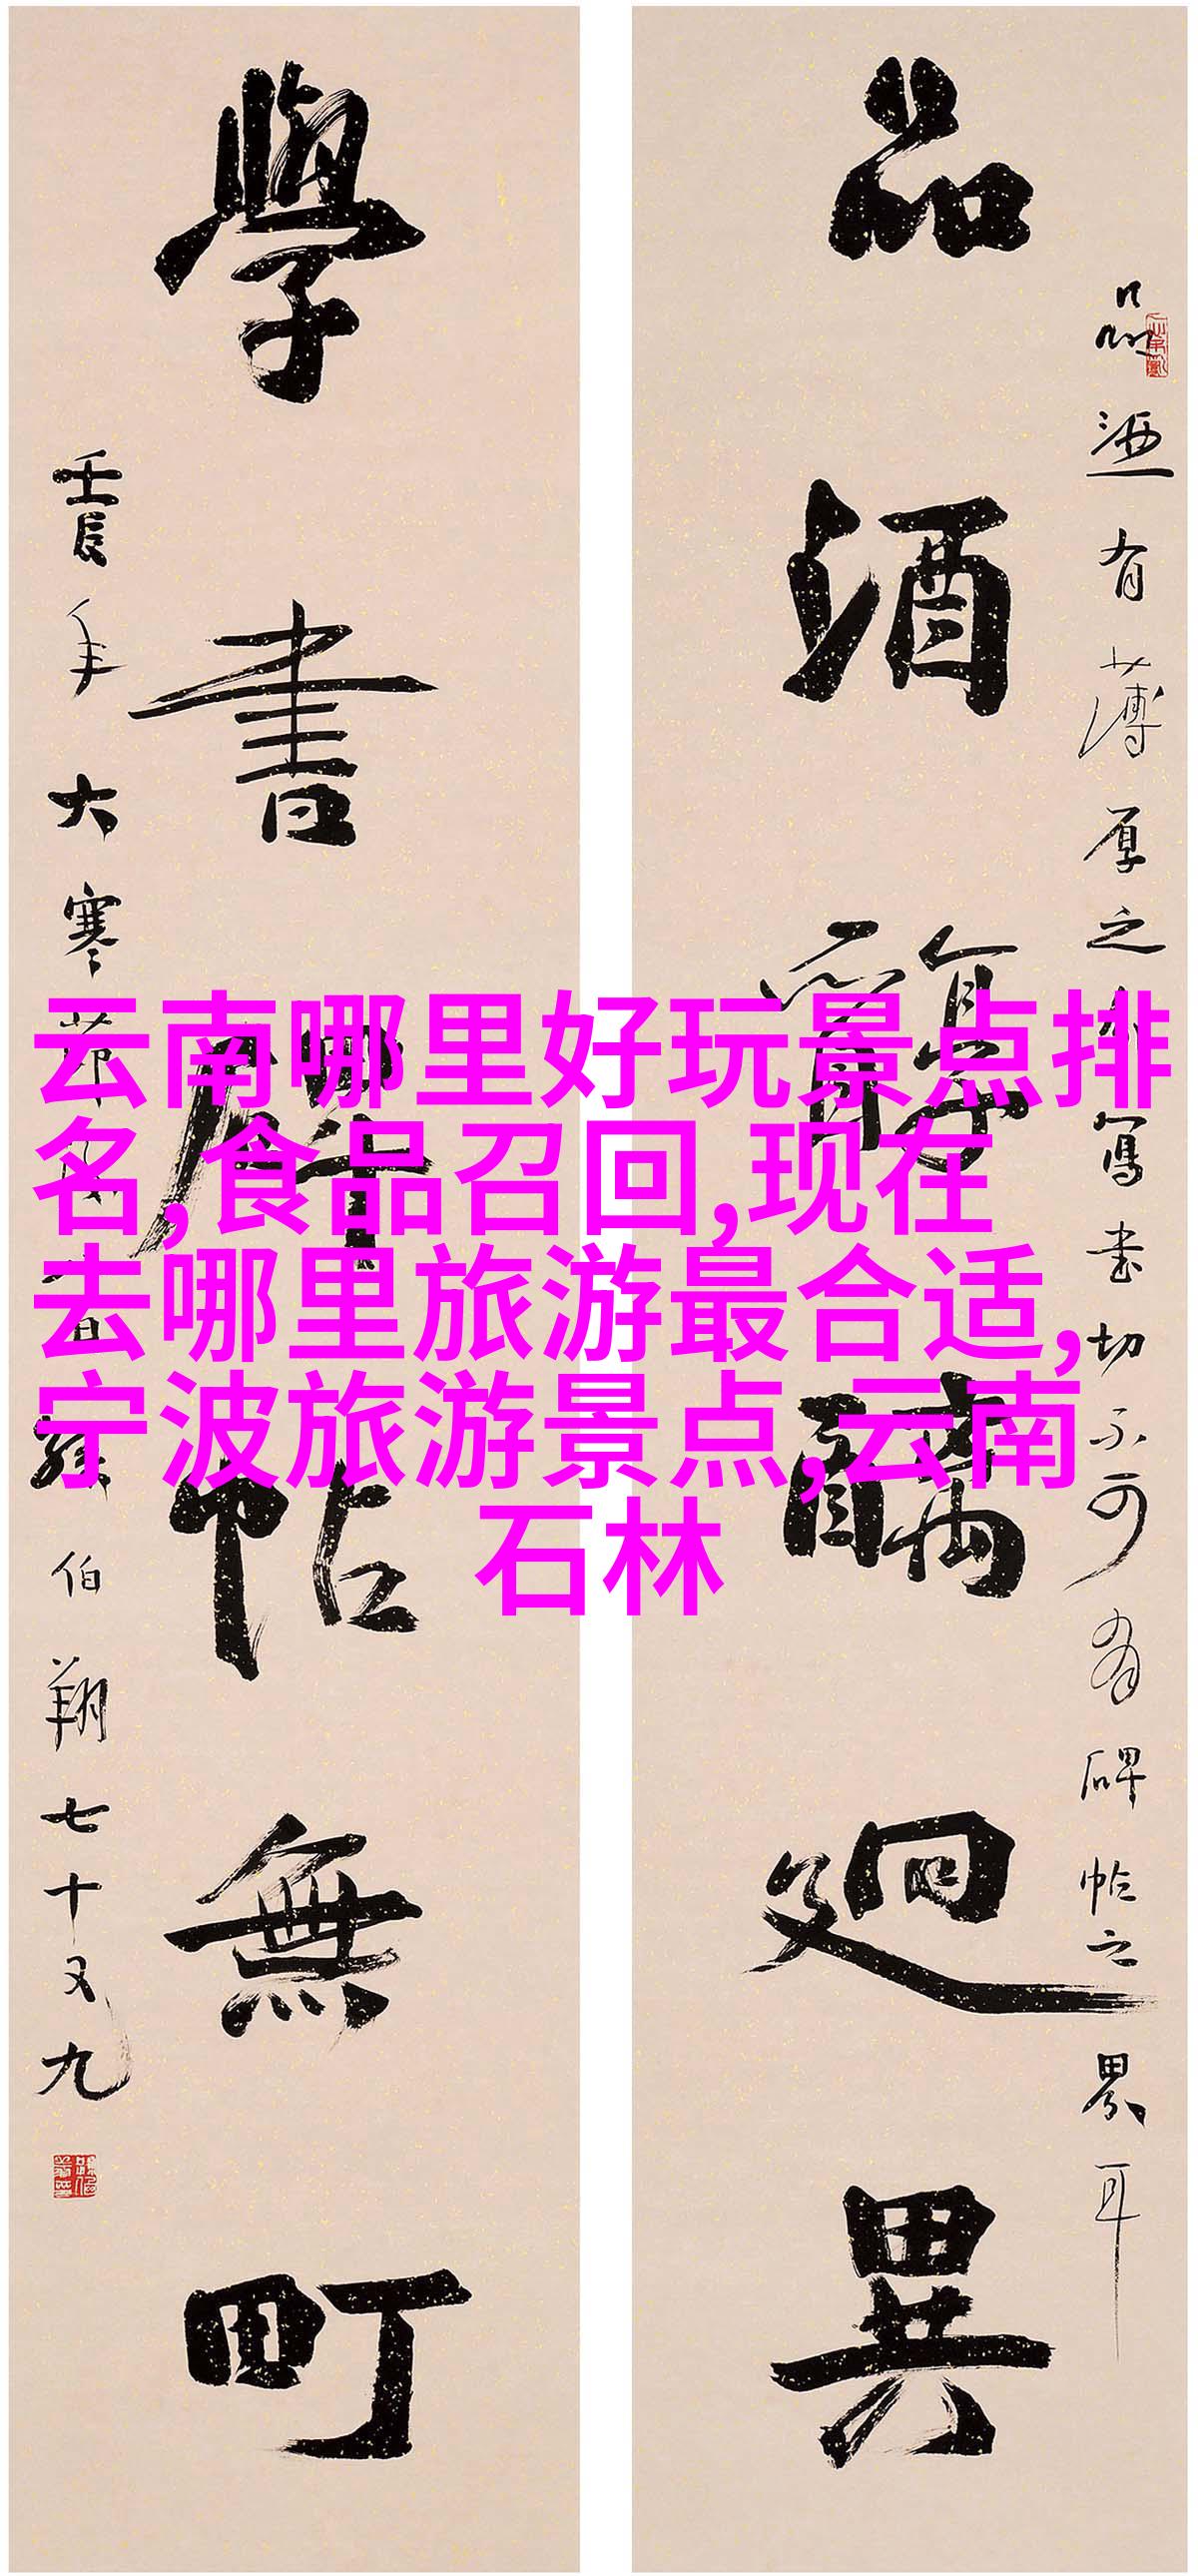 云南哪里好玩景点排
名,食品召回,现在
去哪里旅游最合适,
宁波旅游景点,云南
石林
品酒有薄厚之寫書切不可有碑帖之界耳
品酒醨迴異
學書碑帖無町
壬辰年大寒節日孫伯翔七十又九